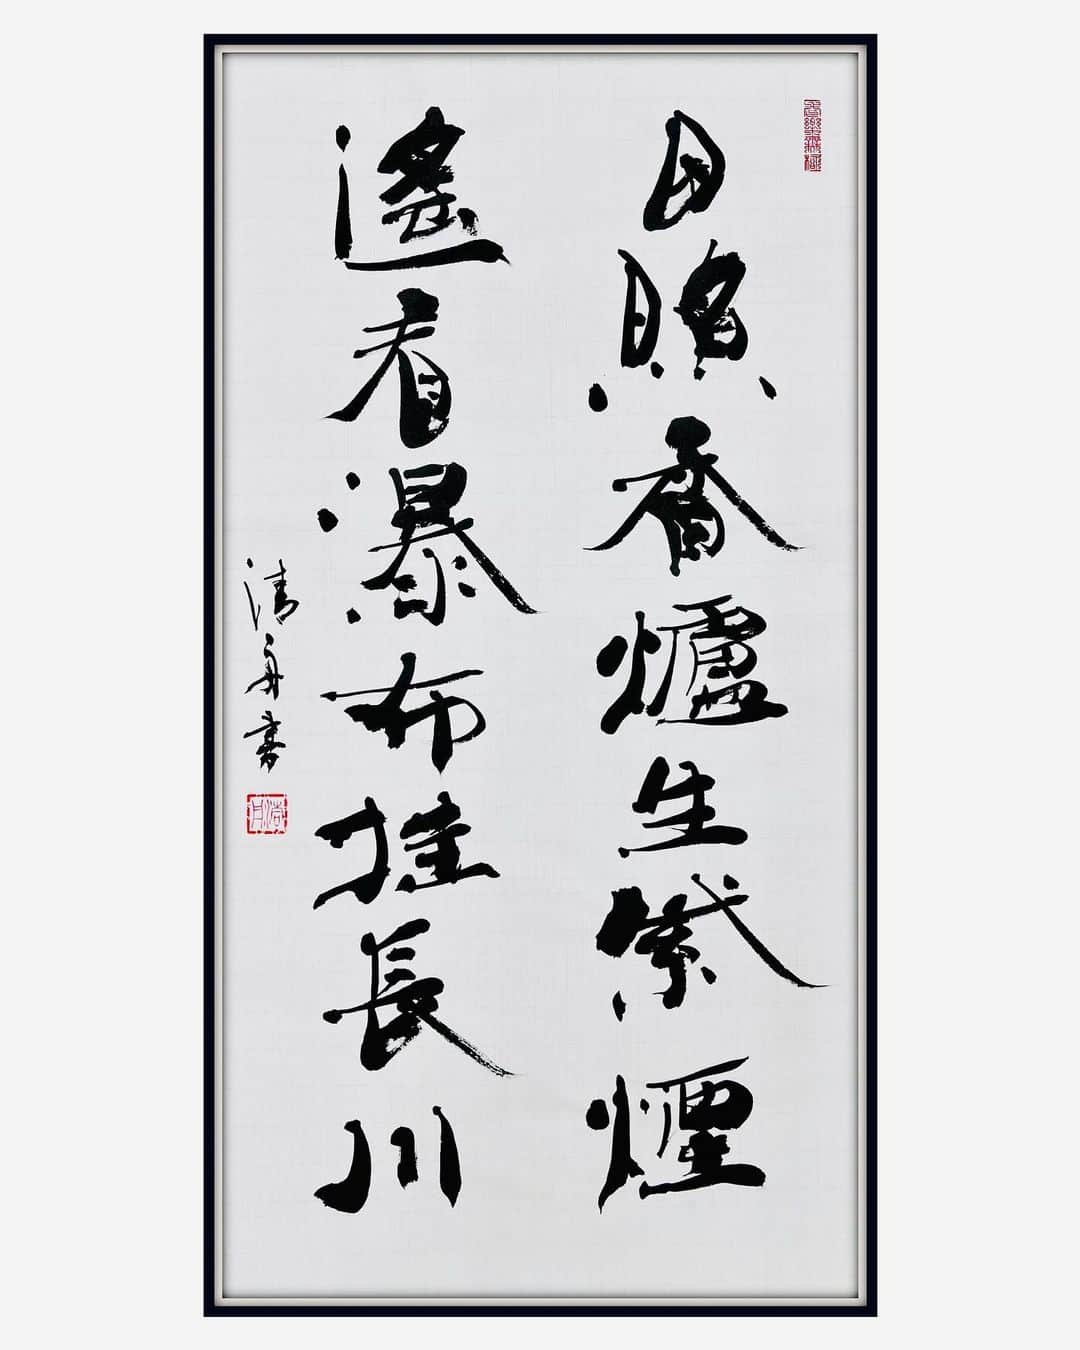 日照香爐生紫煙
遙看瀑布挂長川
清舟書
長樂無極